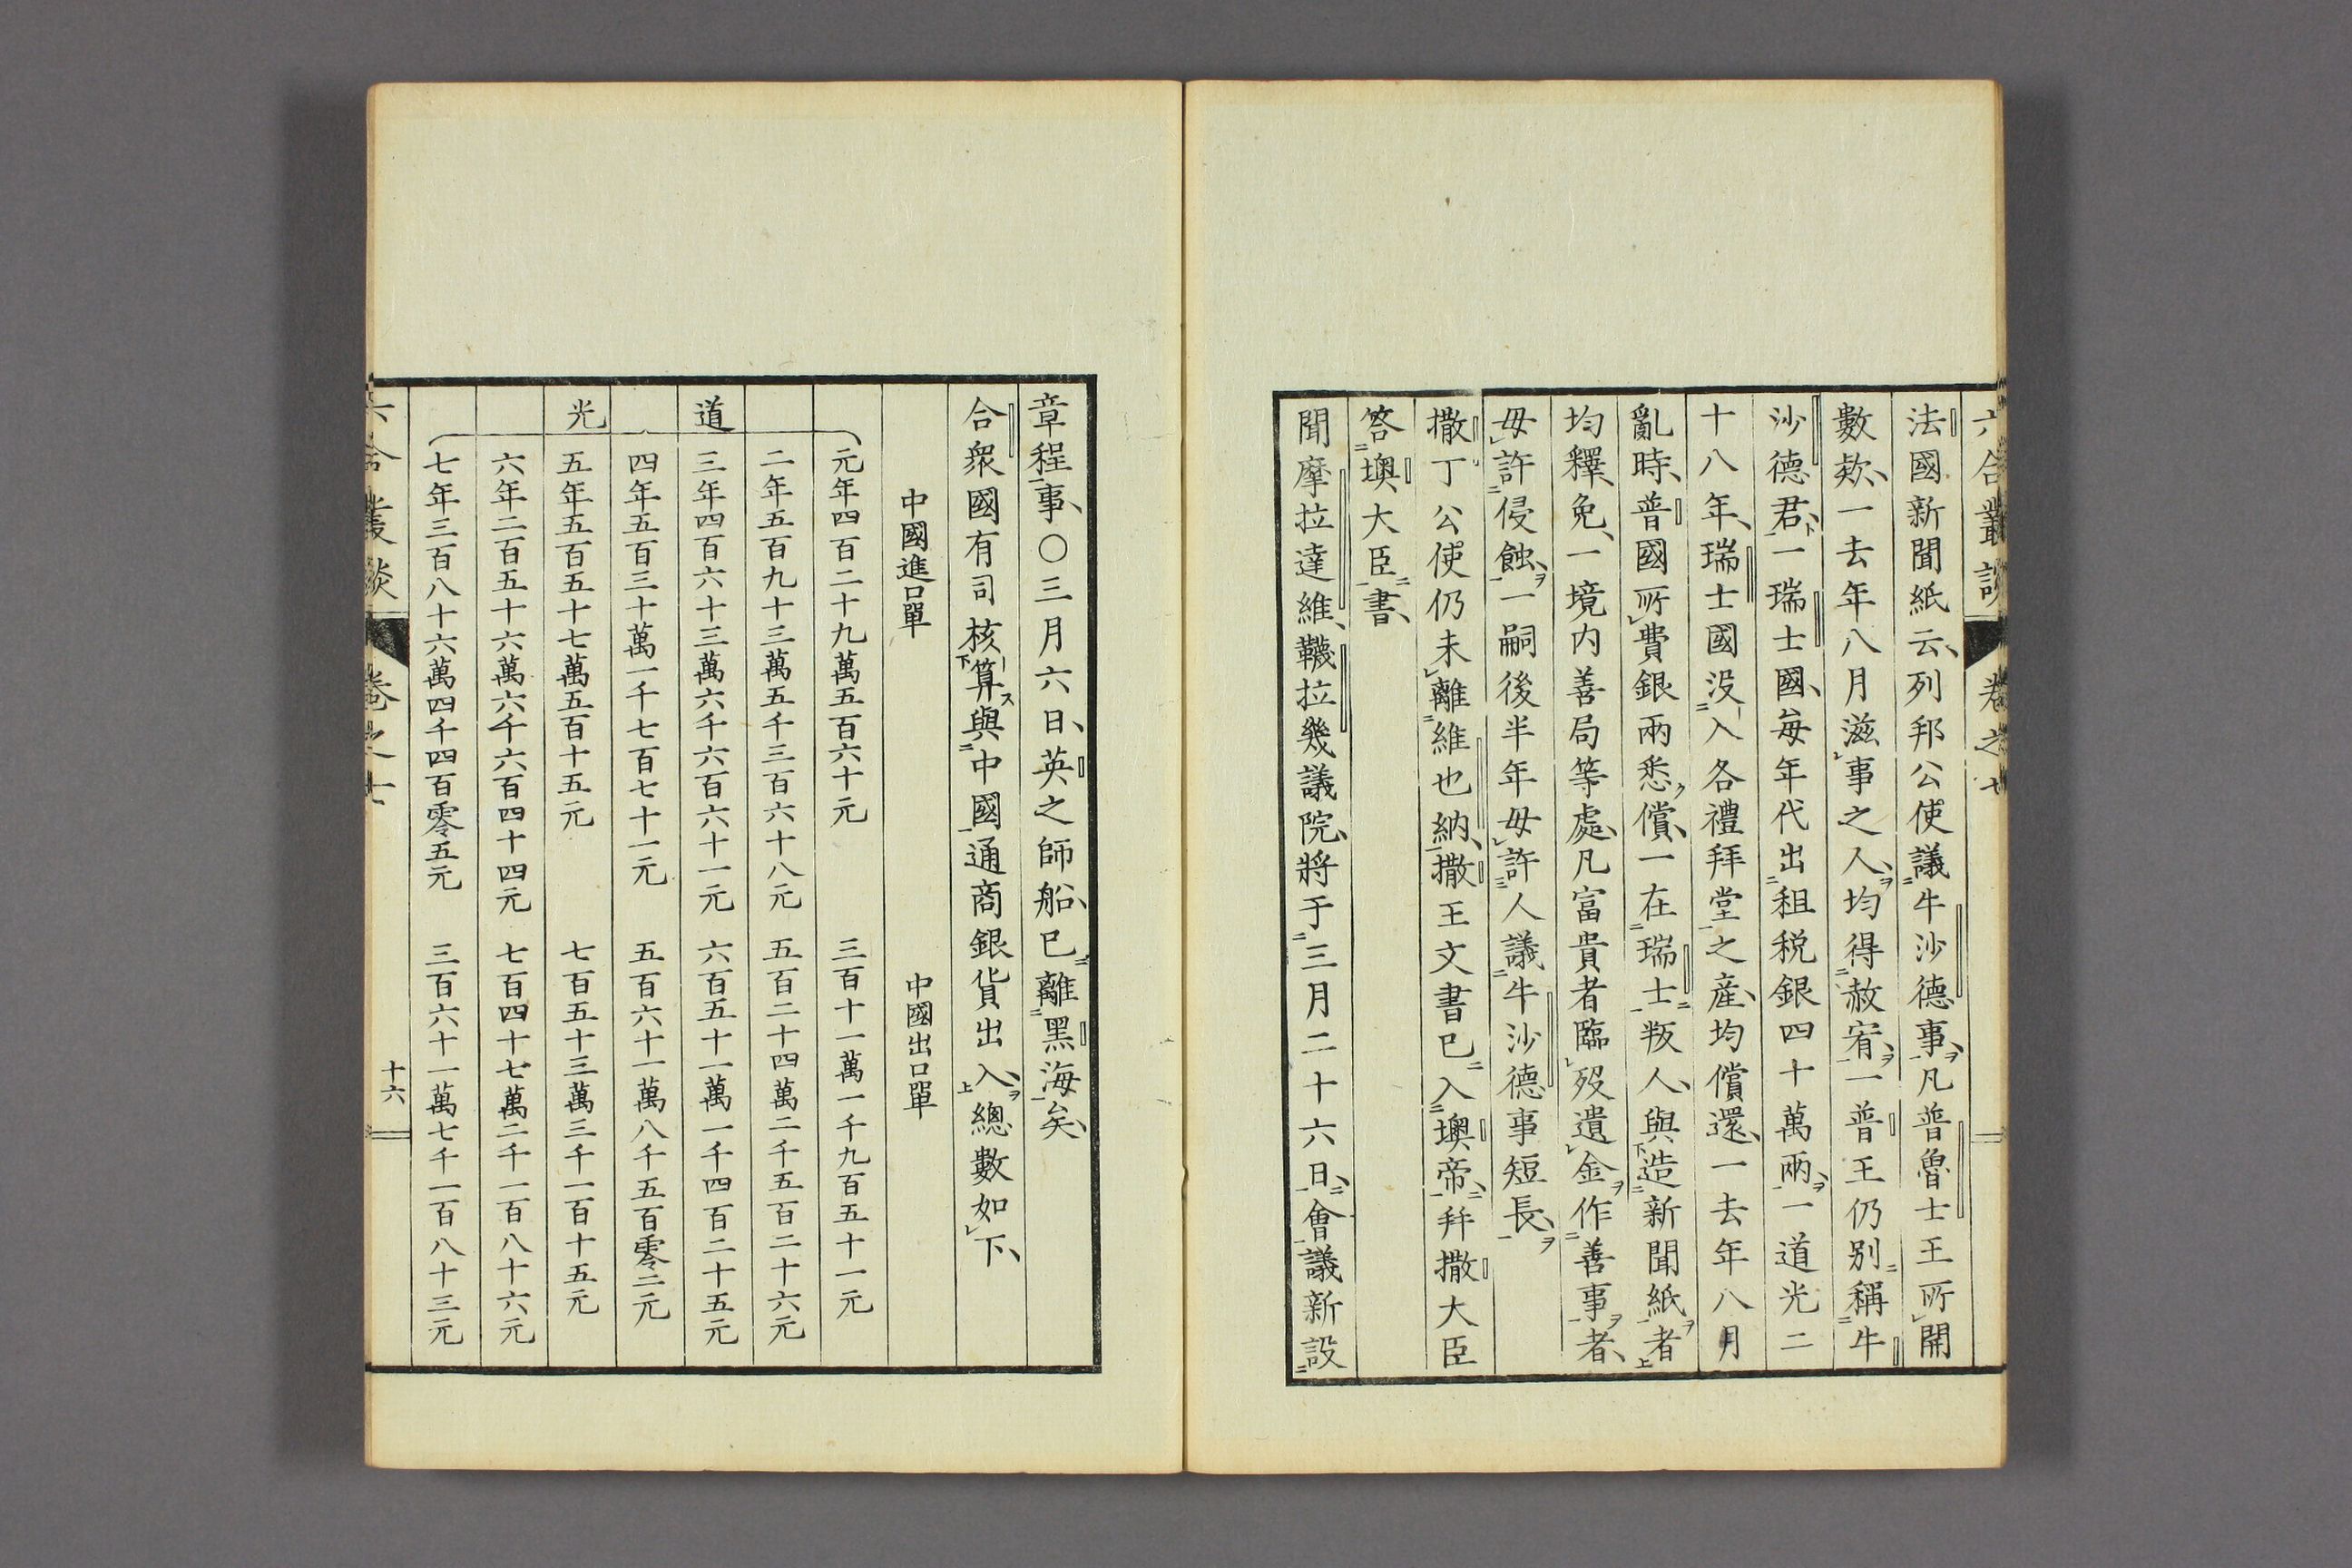 六合叢談 卷之七
法國新聞紙云、列邦公使議牛沙德事、ヲ凡普魯士王所開
數欵、一去年八月滋事之人、ヲ均得赦宥、ヲ一普王仍別稱牛
沙德君、ト一瑞士國、每年代出租稅銀四十萬兩、ヲ一道光二
十八年、瑞士國沒入各禮拜堂之產、均償還、一去年八月
亂時、普國所費銀兩悉ク償、一在瑞士叛人、與造新聞紙ヲ者
均釋免、一境內善局等處、凡富貴者臨歿遺金ヲ作善事ヲ者、
毋許侵蝕、ヲ一嗣後半年毋許人議牛沙德事短長、ヲ
撒丁公使仍未離維也納、撒王文書已入墺帝、幷撒大臣
答墺大臣書、
聞摩拉達維、韈拉幾議院、將于三月二十六日、會議新設
章程事、〇三月六日、英之師船、已離黑海矣、
合衆國有司核算ス與中國通商銀貨出入、ヲ總數如下、
中國進口單 中國出口單
道光
元年四百二十九萬五百六十元 三百十一萬一千九百五十一元
二年五百九十三萬五千三百六十八元 五百二十四萬二千五百二十六元
三年四百六十三萬六千六百六十一元 六百五十一萬一千四百二十五元
四年五百三十萬一千七百七十一元 五百六十一萬八千五百零二元
五年五百五十七萬五百十五元 七百五十三萬三千一百十五元
六年二百五十六萬六千六百四十四元 七百四十七萬二千一百八十六元
七年三百八十六萬四千四百零五元 三百六十一萬七千一百八十三元
六合叢談 卷之七 十六